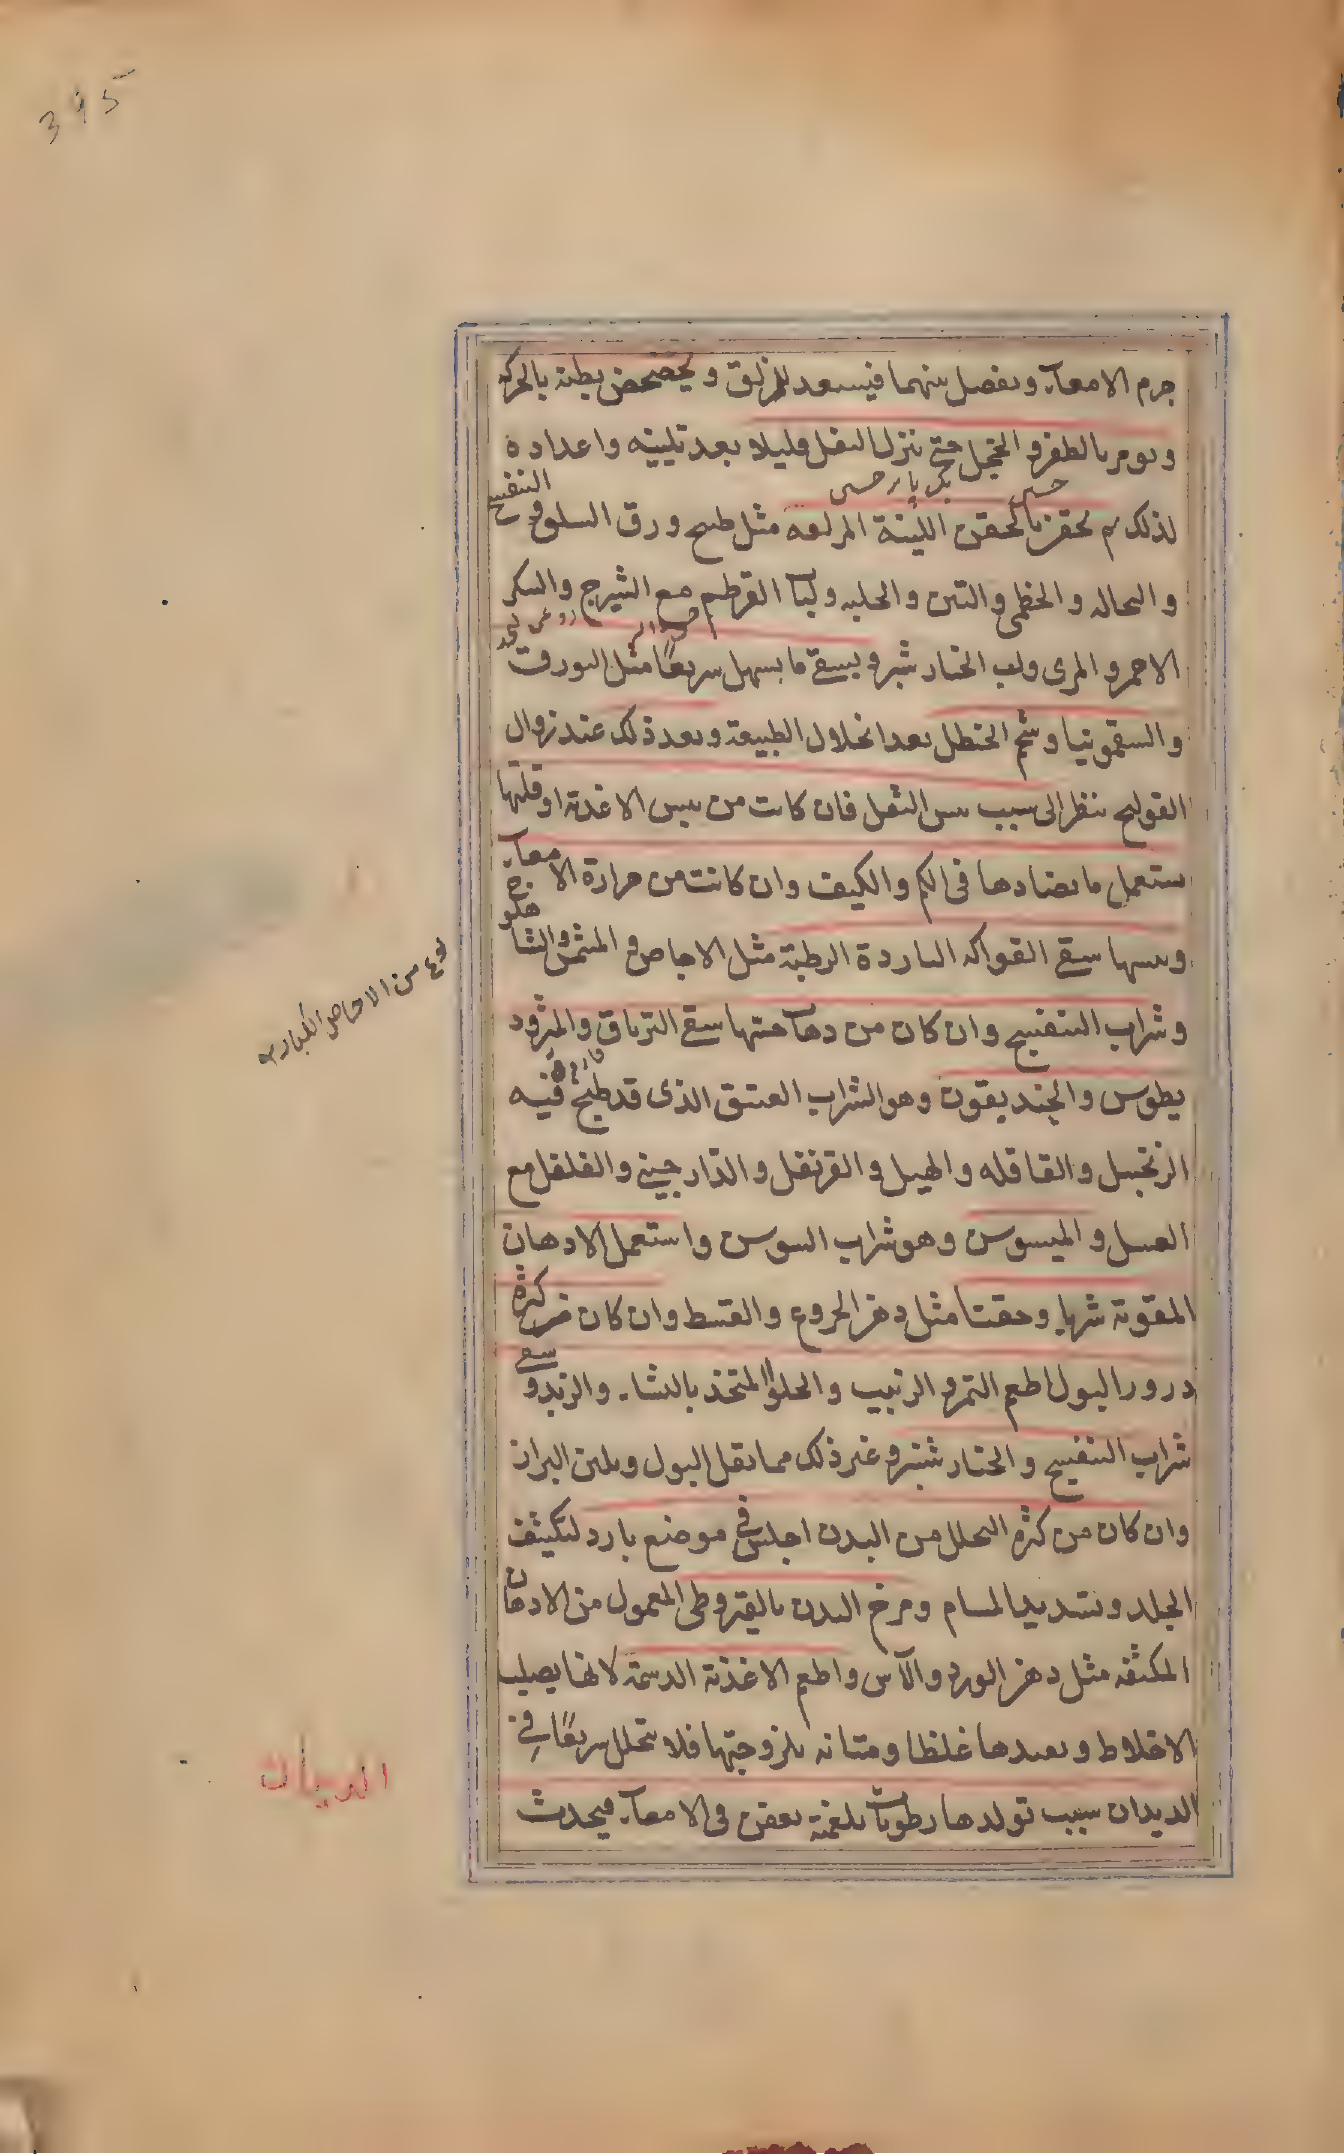 395
جرم الامعاء ويفصل بينهما فيستعد للزلق ويخضخض بطنه بالحركة
ويومر بالطفر والحجل حتى ينزل الثفل قليلا بعد تليينه واعداده
لذلك ثم يحقن بالحقن اللينة المزلقة مثل طبيخ ورق السلق والبنفسج
والنخالة والخطمى والتين والحلبه ولباب القرطم مع الشيرج والسكر
الاحمر والمرى ولب الخيار شنبر ويسقى ما يسهل سريعًا مثل البورق
والسقمونيا وشحم الحنظل بعد انحلال الطبيعة وبعد ذلك عند زوال
القولنج ينظر الى سبب يبس الثفل فان كانت من يبس الاغذية او قلتها
يستعمل ما يضادها فى الكم والكيف وان كانت من حرارة الامعاء
ويبسها سقى الفواكه الباردة الرطبة مثل الاجاص والمشمش والشاهلوج
وشراب البنفسج وان كان من ذهاب حسها سقى الترياق والمثرود
يطوس والجنديقون وهو الشراب العتيق الذى قد طبخ فيه
الزنجبيل والقاقله والهيل والقرنفل والدارجينى والفلفل مع
العسل والميسوس وهو شراب السوس واستعمل الادهان
المقوية شربا وحقنا مثل دهن الخروع والقسط وان كان من كثرة
درور البول اطعم التمر والزبيب والحلوا المتخذ بالنشاء والزبد وسقى
شراب البنفسج والخيار شنبر وغير ذلك مما يقل البول ويلين البراز
وان كان من كثرة التحلل من البدن اجلس فى موضع بارد لتكثيف
الجلد وتسديد المسام ومرخ البدن بالقيروطى المعمول من الادهان
المكثفه مثل دهن الورد والآس واطعم الاغذية الدسمة لانها يصلب
الاخلاط ويفيدها غلظا ومتانه بلزوجتها فلا يتحلل سريعًا فى
الديدان سبب تولدها رطوبات بلغمية يعفن فى الامعاء فيحدث
نوع من الاجاص الكبار
الديدان